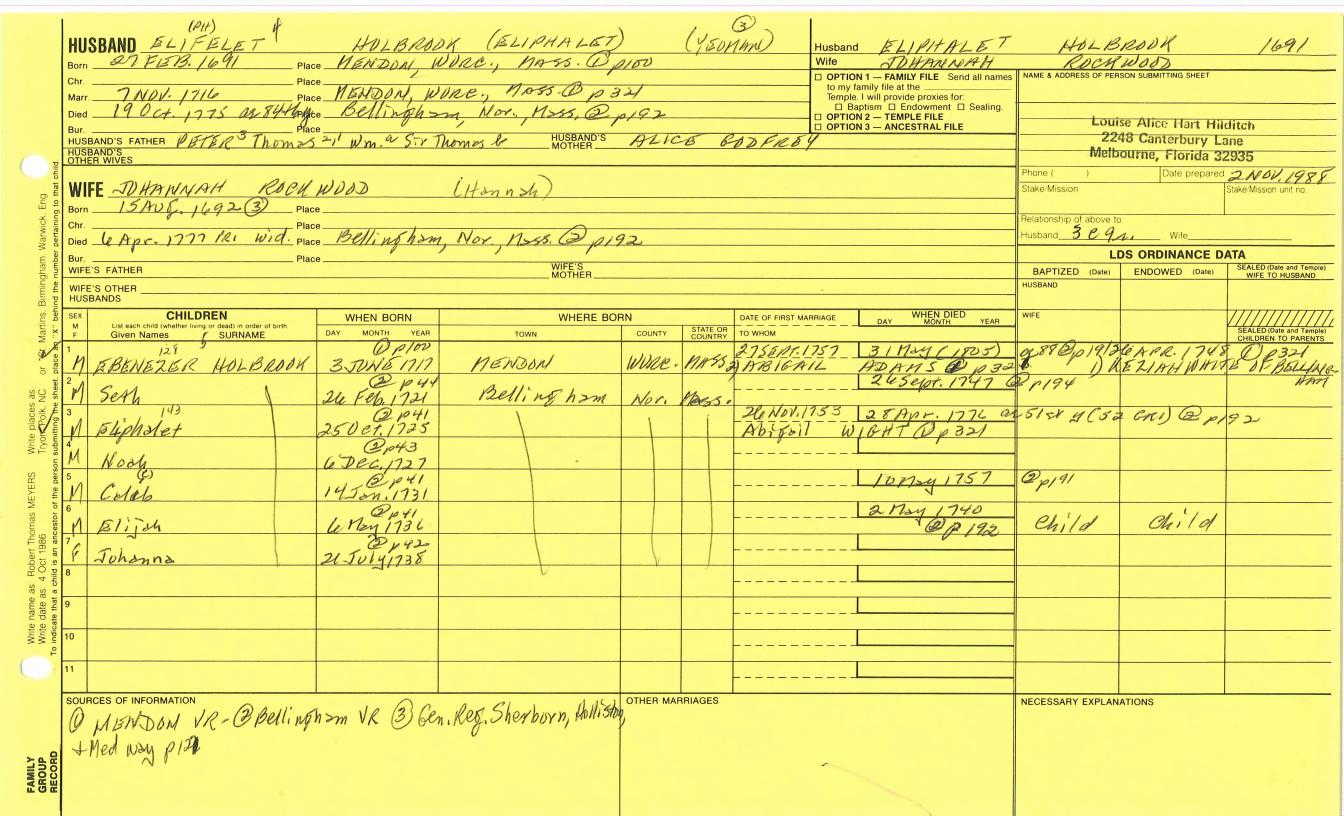 (PH) 4 ③
HUSBAND ELIFELET HOLBROOK (ELIPHALET) (YEOMAN)
Born 27 FEB. 1691 Place MENDON, WORC., MASS. ① p100
Chr. Place
Marr 7 NOV. 1716 Place MENDON, WORC., MASS. ① p321
Died 19 Oct. 1775 Place Bellingham, Nor., Mass. ② p192
Bur. Place
HUSBAND'S FATHER PETER 3 Thomas 2,1 Wm. a Sir Thomas b HUSBAND'S MOTHER ALICE GODFREY
HUSBAND'S OTHER WIVES
WIFE JOHANNAH ROCKWOOD (Hannah)
Born 15 AUG. 1692 ③ Place
Chr. Place
Died 6 Apr. 1777 PR1 wid. Place Bellingham, Nor., Mass. ② p192
Bur. Place
WIFE'S FATHER WIFE'S MOTHER
WIFE'S OTHER HUSBANDS
Husband ELIPHALET HOLBROOK 1691
Wife JOHANNAH ROCKWOOD
☐ OPTION 1 — FAMILY FILE Send all names
to my family file at the
Temple. I will provide proxies for:
☐ Baptism ☐ Endowment ☐ Sealing.
☐ OPTION 2 — TEMPLE FILE
☐ OPTION 3 — ANCESTRAL FILE
NAME & ADDRESS OF PERSON SUBMITTING SHEET
Louise Alice Hart Hilditch
2248 Canterbury Lane
Melbourne, Florida 32935
Phone ( ) Date prepared 2 NOV. 1988
Stake-Mission Stake-Mission unit no.
Relationship of above to:
Husband Wife
LDS ORDINANCE DATA
BAPTIZED (Date) ENDOWED (Date) SEALED (Date and Temple) WIFE TO HUSBAND
HUSBAND
WIFE
SEALED (Date and Temple) CHILDREN TO PARENTS
SEX M F CHILDREN WHEN BORN WHERE BORN DATE OF FIRST MARRIAGE WHEN DIED
List each child (whether living or dead) in order of birth
Given Names SURNAME DAY MONTH YEAR TOWN COUNTY STATE OR COUNTRY TO WHOM DAY MONTH YEAR
1 ① p100 27 SEPT. 1757 31 May (1805) 26 APR. 1748 ① p321
M EBENEZER HOLBROOK 3 JUNE 1717 MENDON WORC. MASS. ABIGAIL ADAMS 1) KEZIAH WHITE OF BELLINGHAM
2 ② p44 26 Sept. 1747 ② p194
M Seth 26 Feb. 1721 Bellingham Nor. Mass.
3 143 ② p41 26 NOV. 1753 28 Apr. 1776 ② p192
M Eliphalet 25 Oct. 1725 Abigail WIGHT ① p321
4 ② p43
M Noah 6 DEC. 1727
5 ② p41 10 May 1757 ② p191
M Caleb 14 Jan. 1731
6 ② p41 2 May 1740
M Elijah 6 May 1736 ② p192 Child Child
7 ② p42
F Johanna 21 July 1738
8
9
10
11
SOURCES OF INFORMATION
① MENDON VR - ② Bellingham VR ③ Gen. Reg. Sherborn, Holliston,
+ Medway
OTHER MARRIAGES
NECESSARY EXPLANATIONS
Write name as Robert Thomas MEYERS Write places as Tryon, Polk, NC or St. Martins, Birmingham, Warwick, Eng
Write date as 4 Oct 1986
To indicate that a child is an ancestor of the person submitting the sheet, place an "X" behind the number pertaining to that child
FAMILY
GROUP
RECORD